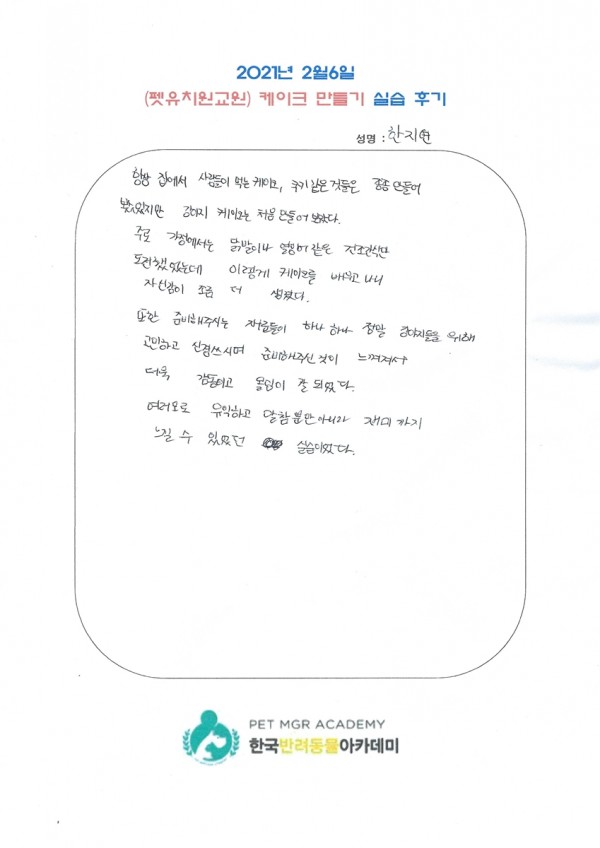 2021년 2월6일
(펫유치원교원) 케이크 만들기 실습 후기
성명 : 한지연
항상 집에서 사람들이 먹는 케이크, 쿠키 같은 것들은 종종 만들어
봤었지만 강아지 케이크는 처음 만들어 봤다.
주로 가정에서는 닭발이나 열빙어 같은 건조간식만
도전했었는데 이렇게 케이크를 배우고 나니
자신감이 조금 더 생겼다.
또한 준비해주시는 재료들이 하나 하나 정말 강아지들을 위해
고민하고 신경쓰시며 준비해주신 것이 느껴져서
더욱 감동되고 몰입이 잘 되었다.
여러모로 유익하고 알참 뿐만 아니라 재미까지
느낄 수 있었던 실습이었다.
PET MGR ACADEMY
한국반려동물아카데미